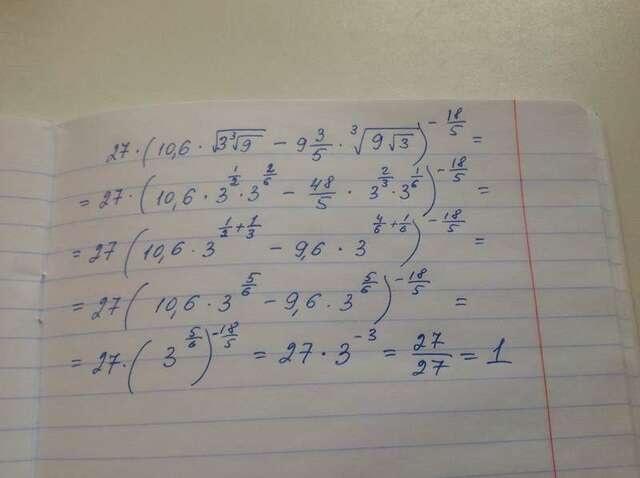 27·(10,6·√(3∛9) − 9 3/5·∛(9√3))^(−18/5) =
= 27·(10,6·3^(1/2)·3^(2/6) − 48/5·3^(2/3)·3^(1/6))^(−18/5) =
= 27(10,6·3^(1/2+1/3) − 9,6·3^(4/6+1/6))^(−18/5) =
= 27(10,6·3^(5/6) − 9,6·3^(5/6))^(−18/5) =
= 27·(3^(5/6))^(−18/5) = 27·3^(−3) = 27/27 = 1